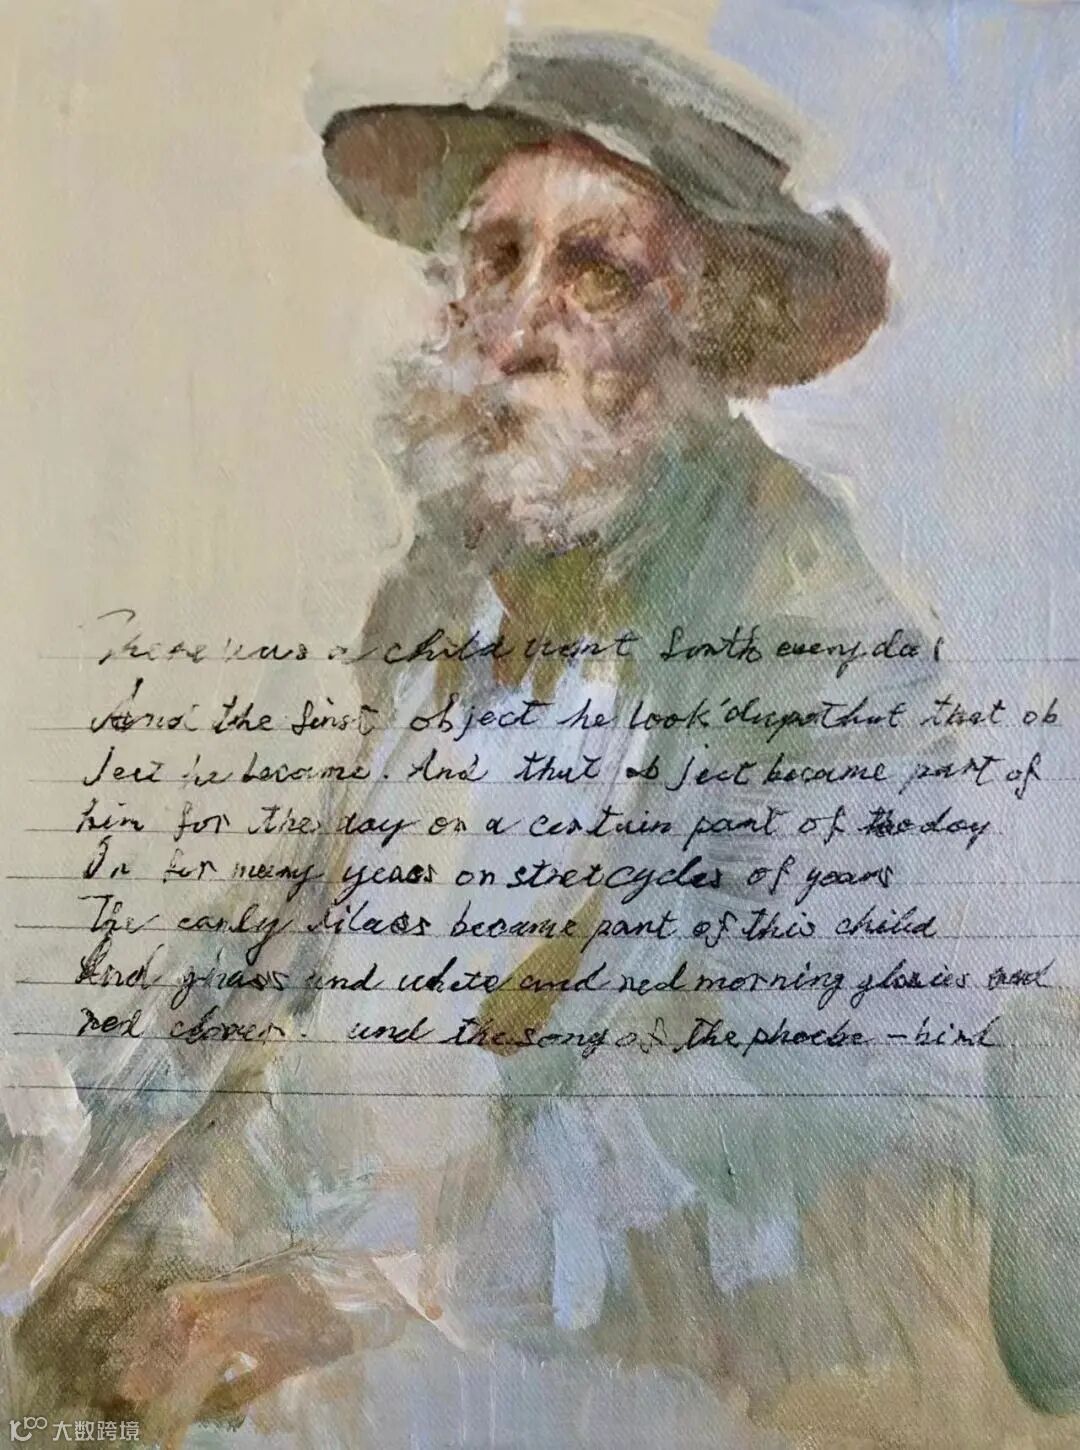 There was a child went forth every day
And the first object he look'd upot hut that ob
ject he became. And that object became part of
him for the day or a certain part of the day
Or for many years or stretcycles of years
The early lilacs became part of this child
And grass und white and red morning glories and
red clover. und the song of the phoebe-bird
大数跨境